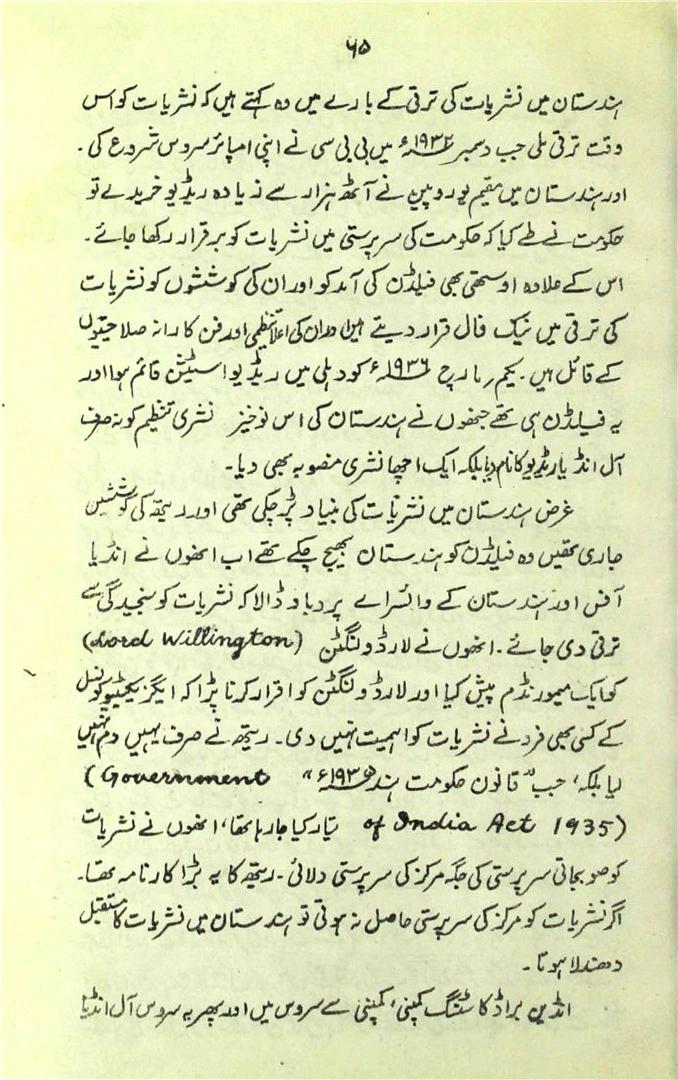 ۶۵
ہندستان میں نشریات کی ترقی کے بارے میں وہ کہتے ہیں کہ نشریات کو اس
وقت ترقی ملی جب دسمبر ۱۹۳۲ء میں بی بی سی نے اپنی امپائر سروس شروع کی ۔
اور ہندستان میں مقیم یوروپین نے آٹھ ہزار سے زیادہ ریڈیو خریدے تو
حکومت نے طے کیا کہ حکومت کی سرپرستی میں نشریات کو برقرار رکھا جائے ۔
اس کے علاوہ اوستھی بھی فیلڈن کی آمد کو اور ان کی کوششوں کو نشریات
کی ترقی میں نیک فال قرار دیتے ہیں اور ان کی اعلا تنظیمی اور فن کارانہ صلاحیتوں
کے قائل ہیں ۔ یکم مارچ ۱۹۳۶ء کو دہلی میں ریڈیو اسٹیشن قائم ہوا اور
یہ فیلڈن ہی تھے جنھوں نے ہندستان کی اس نوخیز نشری تنظیم کو نہ صرف
آل انڈیا ریڈیو کا نام دیا بلکہ ایک اچھا نشری منصوبہ بھی دیا ۔
غرض ہندستان میں نشریات کی بنیاد پڑ چکی تھی اور ریتھ کی کوششیں
جاری تھیں وہ فیلڈن کو ہندستان بھیج چکے تھے اب انھوں نے انڈیا
آفس اور ہندستان کے وائسراے پر دباو ڈالا کہ نشریات کو سنجیدگی سے
ترقی دی جائے ۔ انھوں نے لارڈ ولنگٹن (Lord Willington)
کو ایک میمورنڈم پیش کیا اور لارڈ ولنگٹن کو اقرار کرنا پڑا کہ ایگزیکیٹیو کونسل
کے کسی بھی فرد نے نشریات کو اہمیت نہیں دی ۔ ریتھ نے صرف یہیں دم نہیں
لیا بلکہ، جب "قانون حکومت ہند ۱۹۳۵ء" (Government
of India Act 1935) تیار کیا جا رہا تھا، انھوں نے نشریات
کو صوبجاتی سرپرستی کی جگہ مرکز کی سرپرستی دلائی ۔ ریتھ کا یہ بڑا کارنامہ تھا ۔
اگر نشریات کو مرکز کی سرپرستی حاصل نہ ہوتی تو ہندستان میں نشریات کا مستقبل
دھندلا ہوتا ۔
انڈین براڈ کاسٹنگ کمپنی، کمپنی سے سروس میں اور پھر یہ سروس آل انڈیا